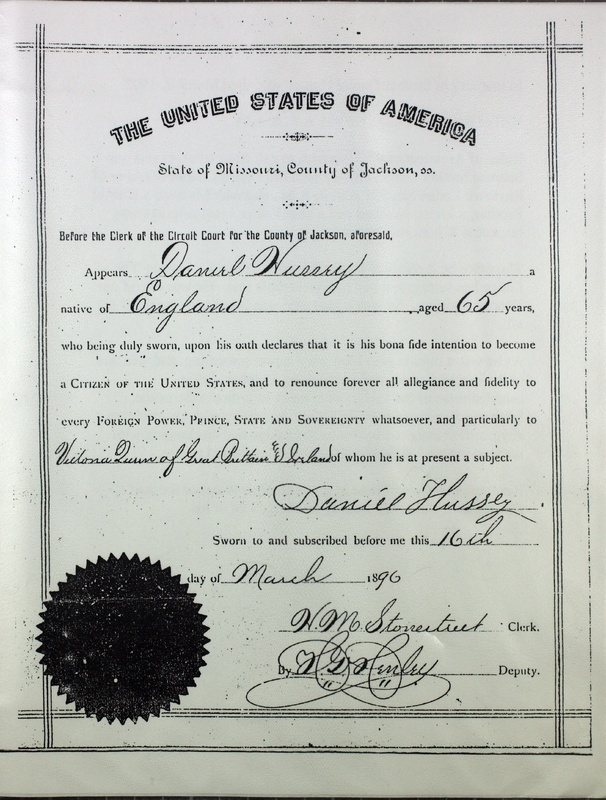 THE UNITED STATES OF AMERICA
State of Missouri, County of Jackson, ss.
Before the Clerk of the Circuit Court for the County of Jackson, aforesaid,
Appears Daniel Hussey a
native of England aged 65 years,
who being duly sworn, upon his oath declares that it is his bona fide intention to become
a CITIZEN OF THE UNITED STATES, and to renounce forever all allegiance and fidelity to
every FOREIGN POWER, PRINCE, STATE AND SOVEREIGNTY whatsoever, and particularly to
Victoria Queen of Great Britain & Ireland of whom he is at present a subject.
Daniel Hussey
Sworn to and subscribed before me this 16th
day of March 1896
H. M. Stonestreet Clerk.
By H. D. Henley Deputy.